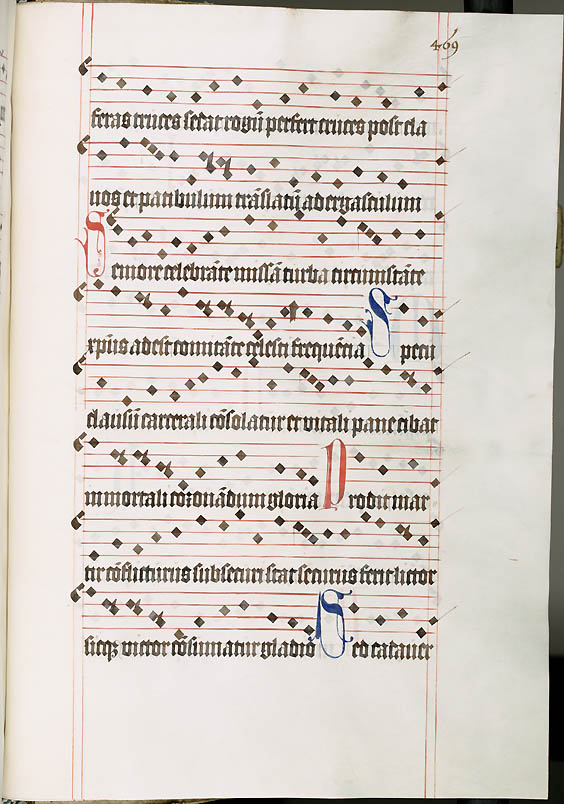 469
feras truces sedat rogū perfert cruces post cla
uos et patibulum trāslatꝰ ad ergastulum
Seniore celebrāte missā turba circumstāte
xp̄us adest comitāte celesti frequētia Specu
clausum carcerali cōsolatur et vitali pane cibat
immortali coronādum gloria Prodit mar
tir cōflicturus sub securi stat securus ferit lictor
sicqꝫ victor cōsūmatur gladio Sed cadauer